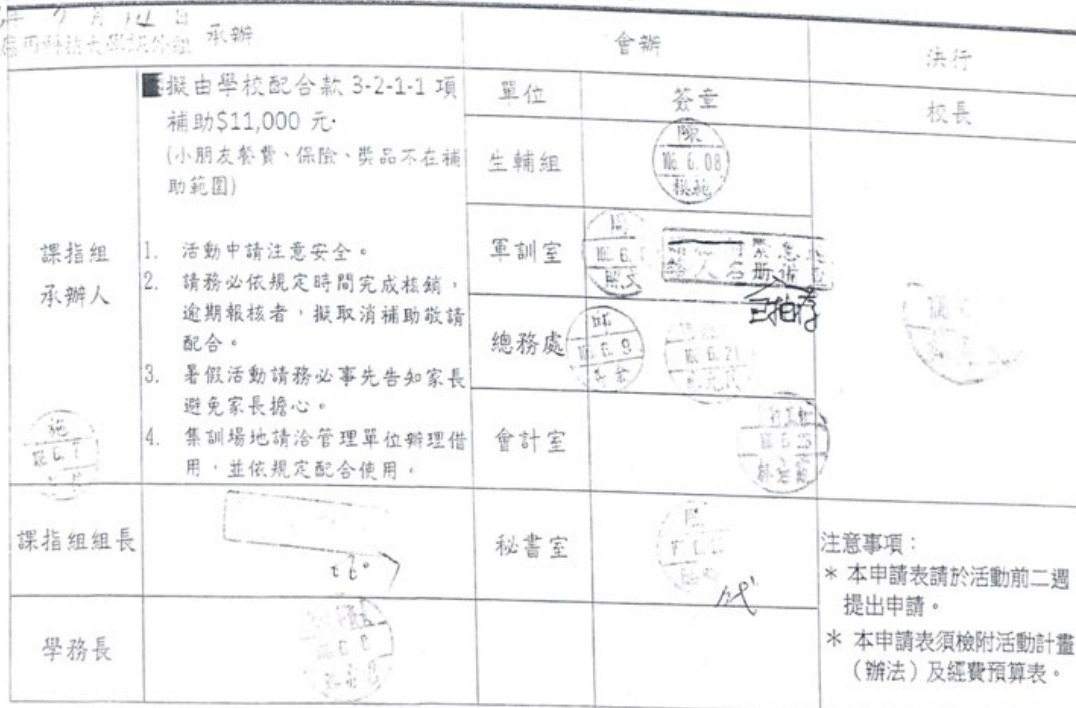 承辦
會辦
決行
擬由學校配合款 3-2-1-1 項
補助$11,000 元
(小朋友餐費、保險、獎品不在補
助範圍)
課指組
承辦人
1. 活動中請注意安全。
2. 請務必依規定時間完成核銷，
逾期報核者，擬取消補助敬請
配合。
3. 暑假活動請務必事先告知家長
避免家長擔心。
4. 集訓場地請洽管理單位辦理借
用，並依規定配合使用。
單位
簽章
校長
生輔組
陳
106. 6. 08
軍訓室
總務處
會計室
課指組組長
秘書室
代
學務長
注意事項：
* 本申請表請於活動前二週
提出申請。
* 本申請表須檢附活動計畫
（辦法）及經費預算表。